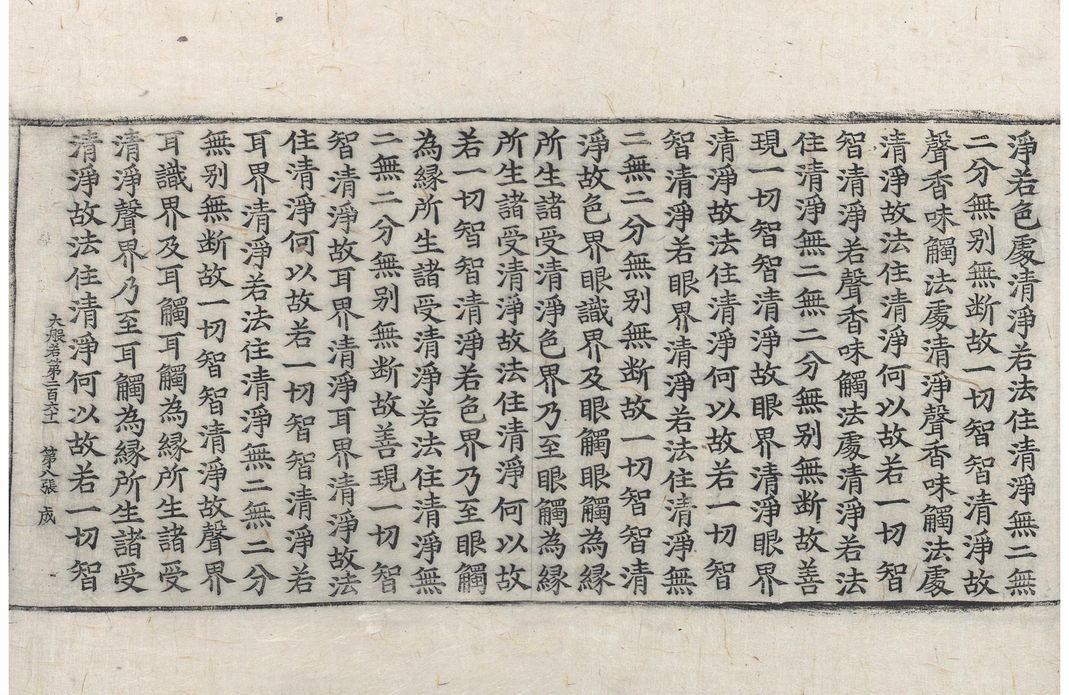 淨若色處清淨若法住清淨無二無
二分無别無断故一切智智清淨故
聲香味觸法處清淨聲香味觸法處
清淨故法住清淨何以故若一切智
智清淨若聲香味觸法處清淨若法
住清淨無二無二分無别無断故善
現一切智智清淨故眼界清淨眼界
清淨故法住清淨何以故若一切智
智清淨若眼界清淨若法住清淨無
二無二分無别無断故一切智智清
淨故色界眼識界及眼觸眼觸為縁
所生諸受清淨色界乃至眼觸為縁
所生諸受清淨故法住清淨何以故
若一切智智清淨若色界乃至眼觸
為縁所生諸受清淨若法住清淨無
二無二分無别無断故善現一切智
智清淨故耳界清淨耳界清淨故法
住清淨何以故若一切智智清淨若
耳界清淨若法住清淨無二無二分
無别無断故一切智智清淨故聲界
耳識界及耳觸耳觸為縁所生諸受
清淨聲界乃至耳觸為縁所生諸受
大般若第二百六十一 第八張 成
清淨故法住清淨何以故若一切智